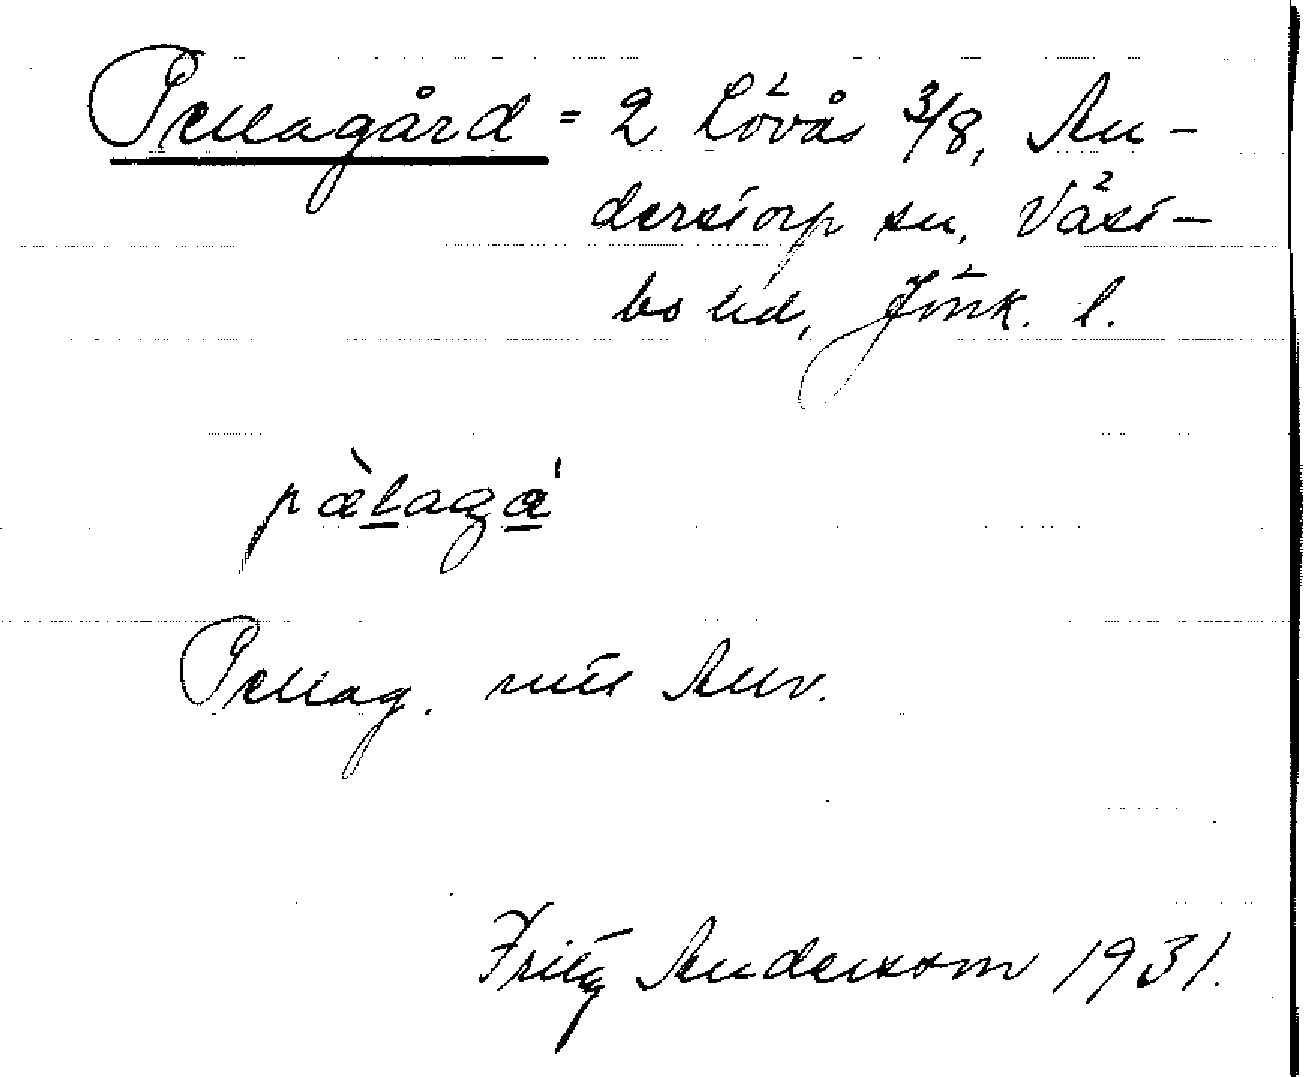 Pellagård = 2 Lövås 3/8, An-
derstorp sn, Väst-
bo hd, Jönk. l.
pællagá
Pellag. utt. Anv.
Fritz Andersson 1931.